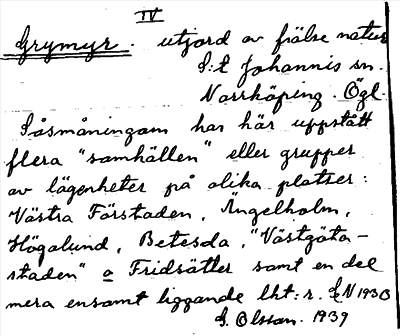 IV
Grymyr. utjord av frälse natur
S:t Johannis sn.
Norrköping. Ögl.
Såsmåningom har här uppstått
flera "samhällen" eller grupper
av lägenheter på olika platser:
Västra Förstaden, Ängelholm,
Högalund, Betesda, "Västgöta-
staden" o Fridsätter samt en del
mera ensamt liggande lht:r. EN 1930
G. Olsson. 1939